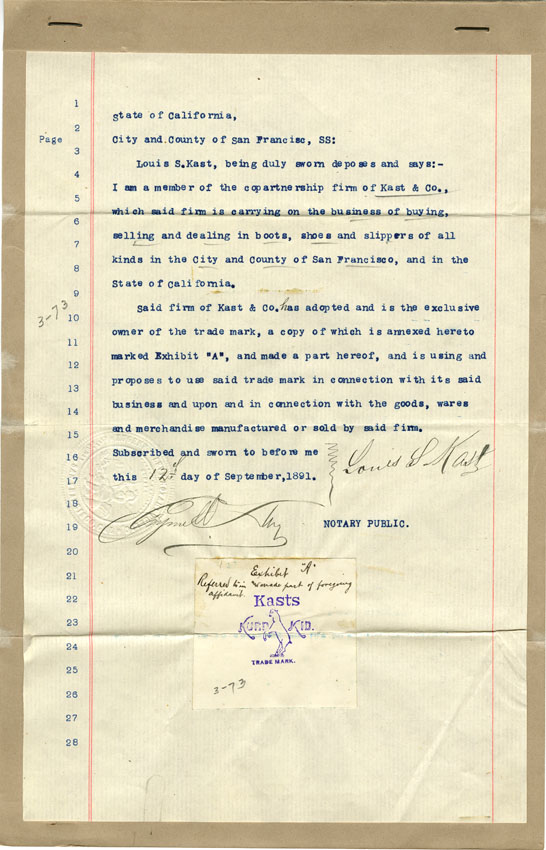 1
state of California,
2
Page City and County of San Francisc, SS:
3
Louis S.Kast, being duly sworn deposes and says:-
4
I am a member of the copartnership firm of Kast & Co.,
5
which said firm is carrying on the business of buying,
6
selling and dealing in boots, shoes and slippers of all
7
kinds in the City and County of San Francisco, and in the
8
State of California.
9
Said firm of Kast & Co. has adopted and is the exclusive
3-73
10
owner of the trade mark, a copy of which is annexed hereto
11
marked Exhibit "A", and made a part hereof, and is using and
12
proposes to use said trade mark in connection with its said
13
business and upon and in connection with the goods, wares
14
and merchandise manufactured or sold by said firm.
15
Subscribed and sworn to before me
16
Louis S Kast
17
this 12th day of September,1891.
18
19
NOTARY PUBLIC.
20
21
Exhibit "A"
Referred to in & made part of foregoing
affidavit.
22
Kasts
23
KID.
24
TRADE MARK.
25
3-73
26
27
28